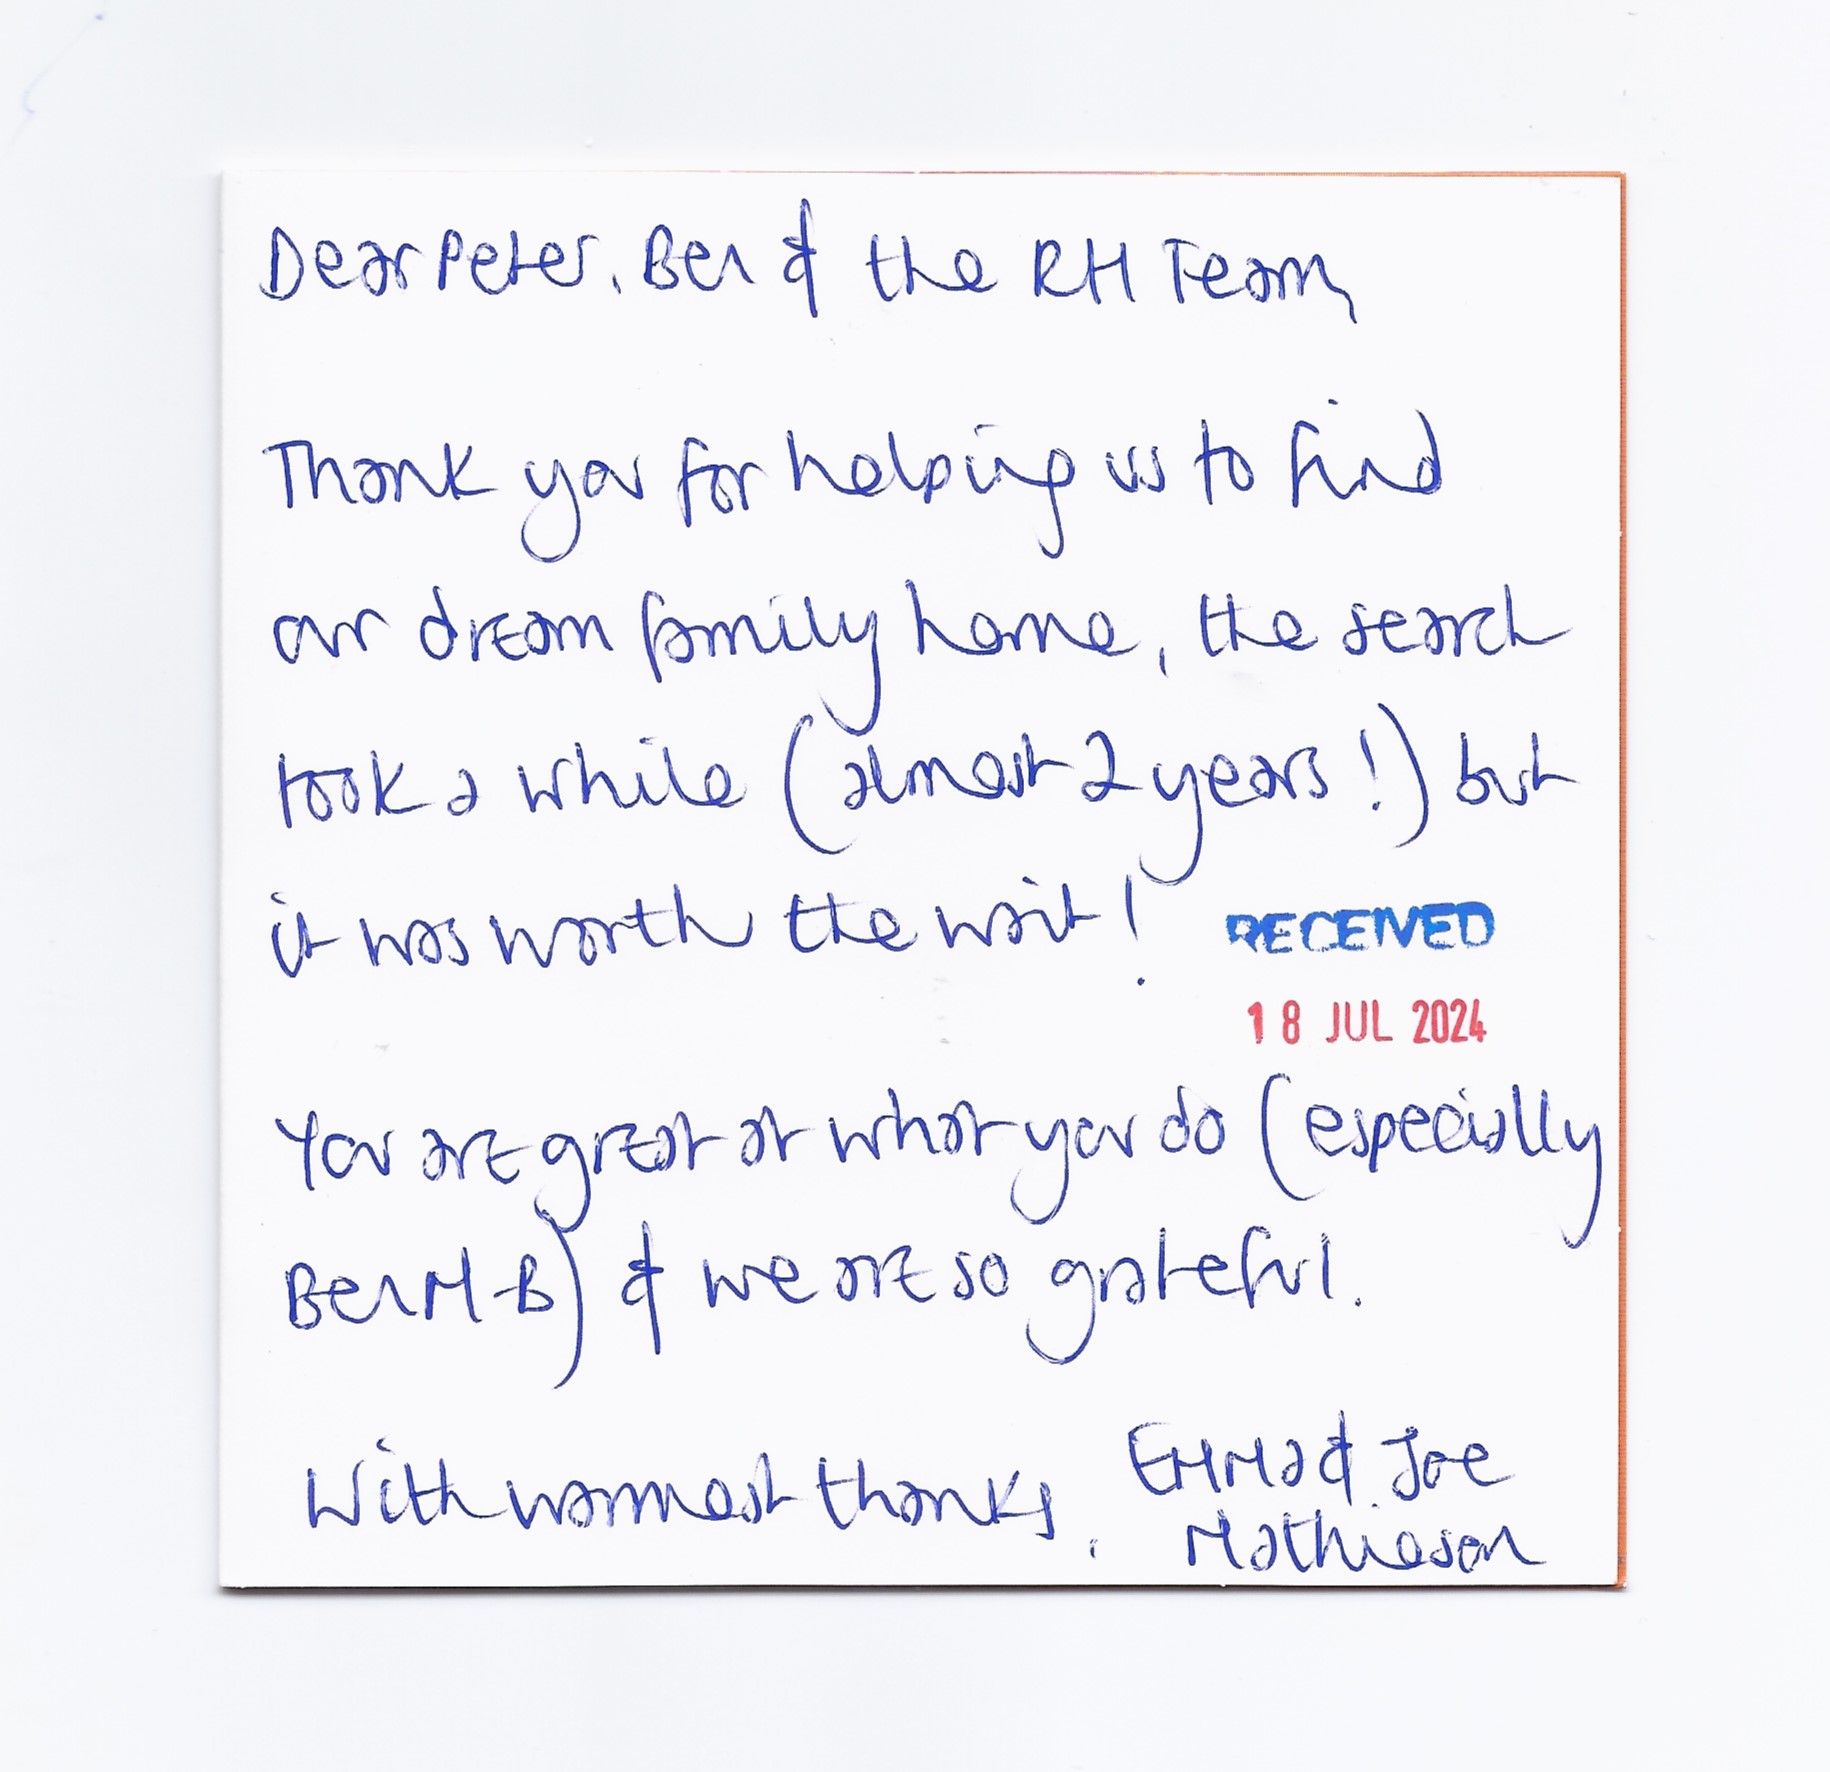 Dear Peter, Ben & the RH Team,
Thank you for helping us to find
our dream family home, the search
took a while (almost 2 years!) but
it was worth the wait!
RECEIVED
18 JUL 2024
You are great at what you do (especially
Ben M-B) & we are so grateful.
With warmest thanks, Emma & Joe
Mathieson